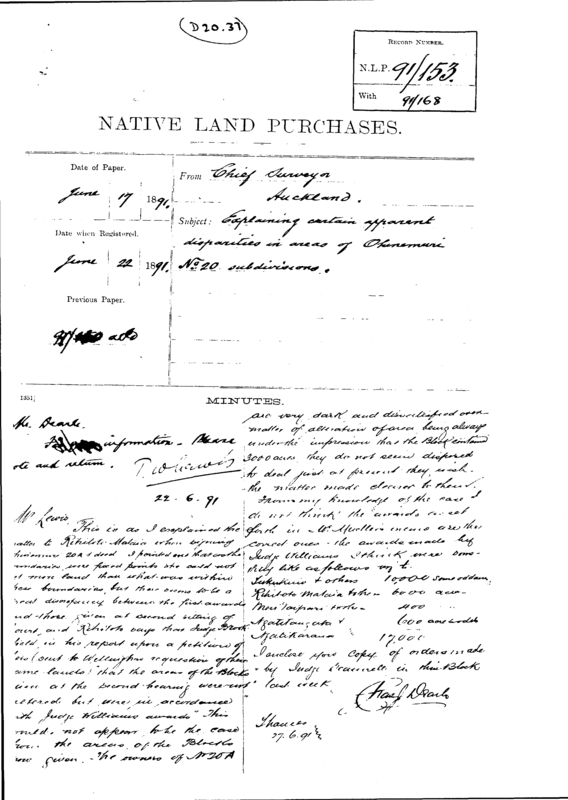 (D20.37)
RECORD NUMBER.
N.L.P. 91/153.
With 91/168
NATIVE LAND PURCHASES.
Date of Paper.
June 17 1891.
Date when Registered.
June 22 1891.
Previous Paper.
From Chief Surveyor
Auckland.
Subject: Explaining certain apparent
disparities in areas of Ohinemuri
No 20 subdivisions.
MINUTES.
Mr. Dearle.
information - Please
note and return.
22.6.91
Mr Lewis,
This is as I explained the
matter to Rihitoto Mataia when signing
deed I pointed out that as the
boundaries were fixed points she could not
more land than what was within
boundaries, but there seems to be a
great discrepancy between the first awards
and those given at second sitting of
Court, and Rihitoto says that Judge
held in his report upon a petition of
sent to Wellington re question of their
same lands that the areas of the Blocks
at the second hearing were not
altered but were in accordance
with Judge Williams awards. This
would not appear to be the case
from the areas of the Blocks
now given. The owners of No 20A
are very dark and dissatisfied over
matter of alteration of area being always
under the impression that the Block contained
3000 acres they do not seem disposed
to deal just at present they wish
the matter made clearer to them.
From my knowledge of the case I
do not think the awards as set
forth in Mr Mueller's memo are the
correct ones - the awards made by
Judge Williams I think were
like as follows viz:
& others 10,000 some odd acres
Rihitoto Mataia & others 6000 acres
Mere & others 400 "
Ngatitangata & 600 and odd
Ngatikaraua 17,000
I enclose you copy of orders made
by Judge Scannell in this Block
last week.
Dearle
Thames
27.6.91